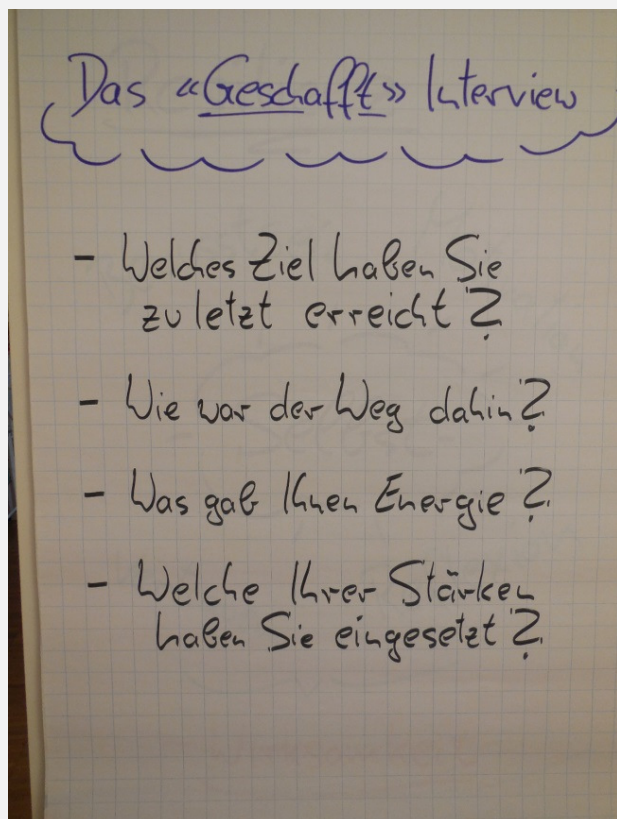 Das «Geschafft» Interview
- Welches Ziel haben Sie
zu letzt erreicht?
- Wie war der Weg dahin?
- Was gab Ihnen Energie?
- Welche Ihrer Stärken
haben Sie eingesetzt?